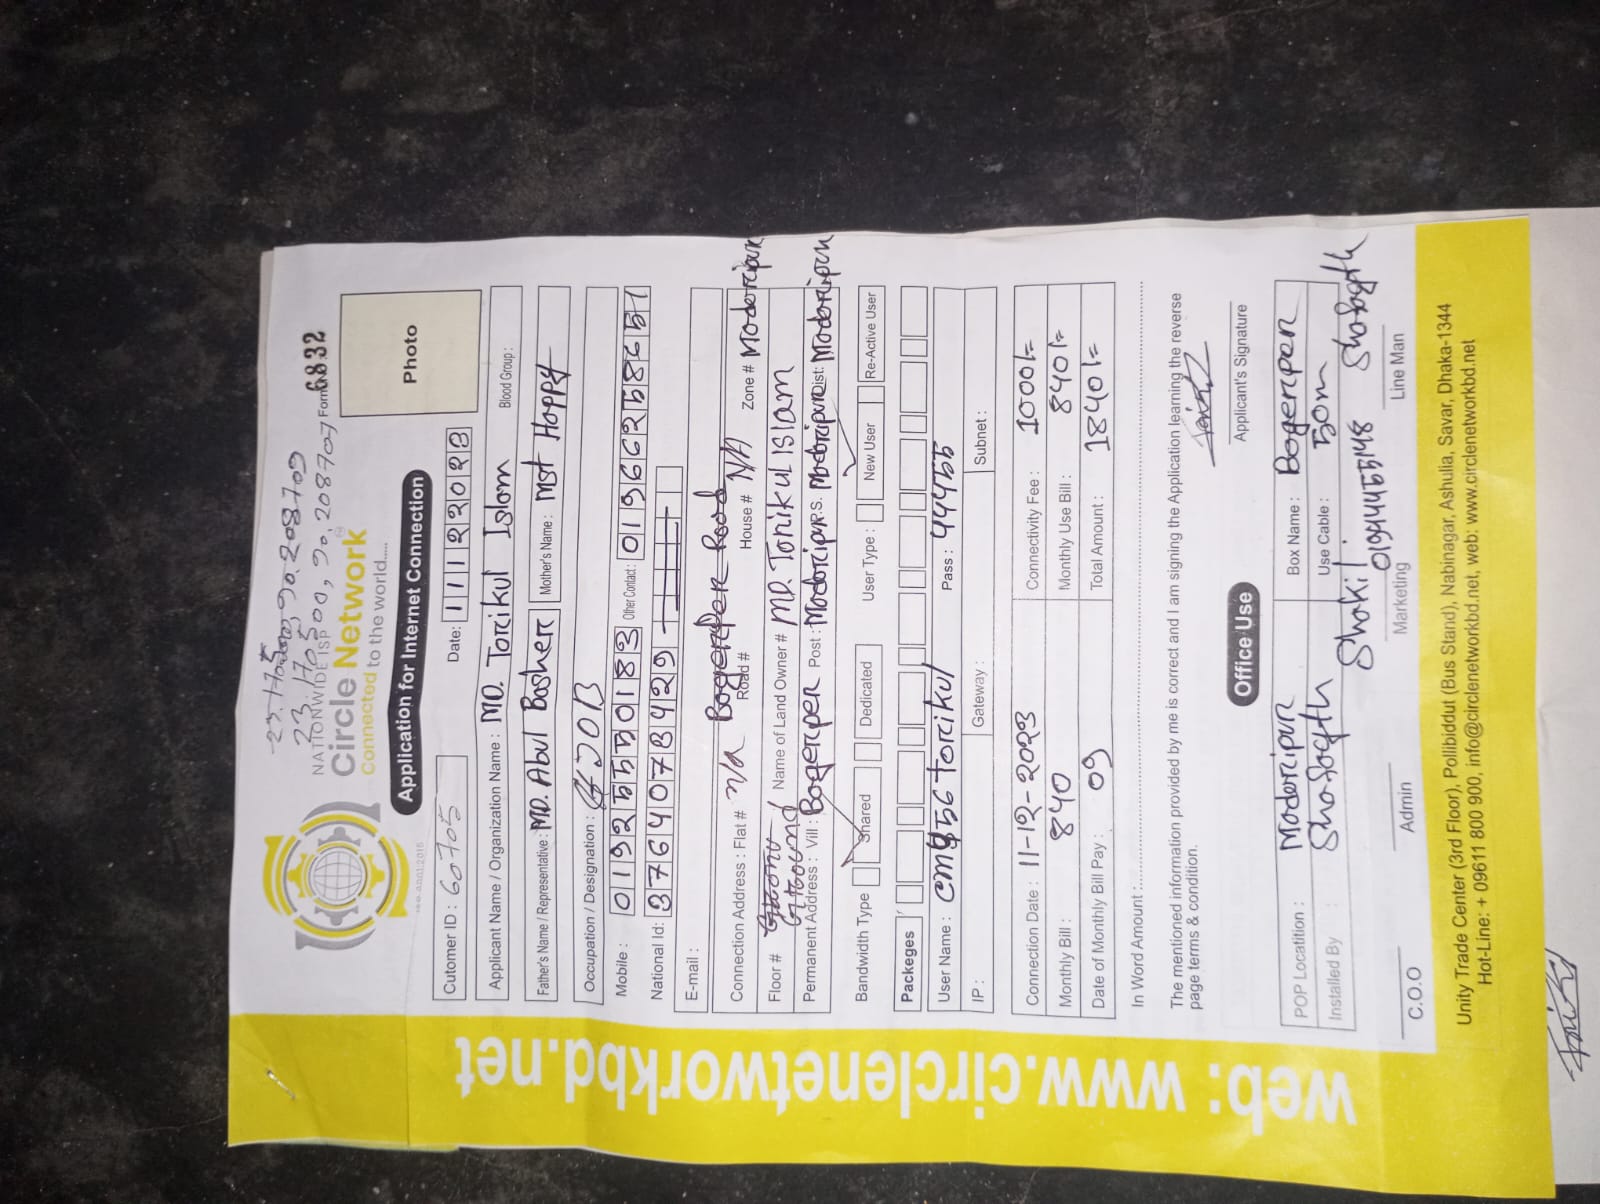 23.1705
23.1705
90.208709
00, 90.208707
NATIONWIDE ISP
Circle Network
Connected to the world......
ISO-9001:2015
Form 6832
Photo
Application for Internet Connection
Cutomer ID : 60705 Date: 11122023
Applicant Name / Organization Name : MD. Torikul Islam Blood Group :
Father's Name / Representative : MD. Abul Basher Mother's Name : Mst Happy
Occupation / Designation : JOB
Mobile : 01925550183 Other Contact : 019662586551
National Id: 3764078429
E-mail :
Connection Address : Flat # n/a Road # House # N/A Zone # Modoripur
Floor # Ground Name of Land Owner # MD. Torikul ISlam
Permanent Address : Vill : Bogerper Post : Modoripur P.S. Modoripur Dist: Modoripur
Bandwidth Type Shared Dedicated User Type : New User Re-Active User
Packeges
User Name : torikul Pass : 444455
IP : Gateway : Subnet :
Connection Date : 11-12-2023 Connectivity Fee : 1000/=
Monthly Bill : 840 Monthly Use Bill : 840/=
Date of Monthly Bill Pay : 09 Total Amount : 1840/=
In Word Amount :
The mentioned information provided by me is correct and I am signing the Application learning the reverse
page terms & condition.
Applicant's Signature
Office Use
POP Locatition : Modoripur Box Name : Bogerper
Installed By : Shafayth Use Cable : 50m
Shakil Shafayth
C.O.O Admin Marketing Line Man
Unity Trade Center (3rd Floor), Pollibiddut (Bus Stand), Nabinagar, Ashulia, Savar, Dhaka-1344
Hot-Line: + 09611 800 900, info@circlenetworkbd.net, web: www.circlenetworkbd.net
web: www.circlenetworkbd.net